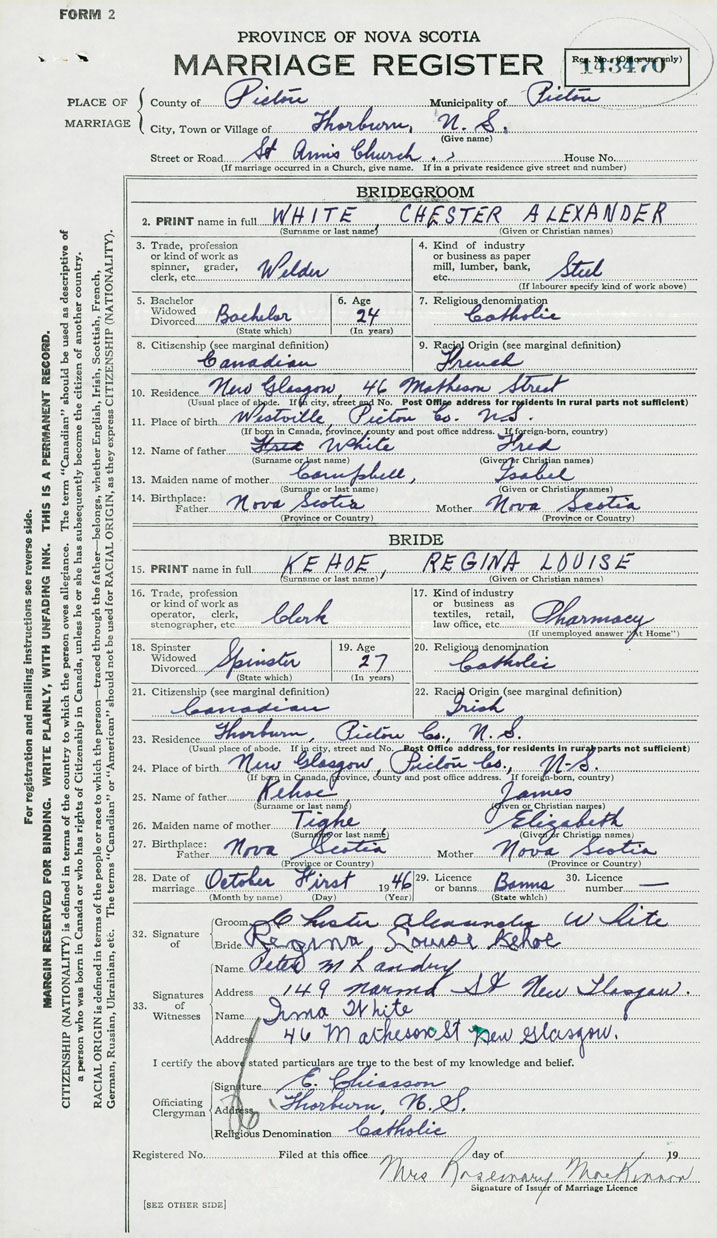 FORM 2
PROVINCE OF NOVA SCOTIA
MARRIAGE REGISTER
Reg. No. (Office use only)
143470
PLACE OF MARRIAGE
County of Pictou Municipality of Pictou
City, Town or Village of Thorburn, N. S.
(Give name)
Street or Road St Ann's Church. House No.
(If marriage occurred in a Church, give name. If in a private residence give street and number)
BRIDEGROOM
2. PRINT name in full WHITE, CHESTER ALEXANDER
(Surname or last name) (Given or Christian names)
3. Trade, profession or kind of work as spinner, grader, clerk, etc. Welder
4. Kind of industry or business as paper mill, lumber, bank, etc. Steel
(If labourer specify kind of work above)
5. Bachelor Widowed Divorced Bachelor (State which)
6. Age 24 (In years)
7. Religious denomination Catholic
8. Citizenship (see marginal definition) Canadian
9. Racial Origin (see marginal definition) French
10. Residence New Glasgow, 46 Matheson Street
(Usual place of abode. If in city, street and No. Post Office address for residents in rural parts not sufficient)
11. Place of birth Westville, Pictou Co. N.S.
(If born in Canada, province, county and post office address. If foreign-born, country)
12. Name of father Fred White Fred
(Surname or last name) (Given or Christian names)
13. Maiden name of mother Campbell, Isabel
(Surname or last name) (Given or Christian names)
14. Birthplace: Father Nova Scotia Mother Nova Scotia
(Province or Country) (Province or Country)
BRIDE
15. PRINT name in full KEHOE, REGINA LOUISE
(Surname or last name) (Given or Christian names)
16. Trade, profession or kind of work as operator, clerk, stenographer, etc. Clerk
17. Kind of industry or business as textiles, retail, law office, etc. Pharmacy
(If unemployed answer "At Home")
18. Spinster Widowed Divorced Spinster (State which)
19. Age 27 (In years)
20. Religious denomination Catholic
21. Citizenship (see marginal definition) Canadian
22. Racial Origin (see marginal definition) Irish
23. Residence Thorburn, Pictou Co., N. S.
(Usual place of abode. If in city, street and No. Post Office address for residents in rural parts not sufficient)
24. Place of birth New Glasgow, Pictou Co., N.S.
(If born in Canada, province, county and post office address. If foreign-born, country)
25. Name of father Kehoe James
(Surname or last name) (Given or Christian names)
26. Maiden name of mother Tighe Elizabeth
(Surname or last name) (Given or Christian names)
27. Birthplace: Father Nova Scotia Mother Nova Scotia
(Province or Country) (Province or Country)
28. Date of marriage October First 1946
(Month by name) (Day) (Year)
29. Licence or banns Banns (State which)
30. Licence number —
32. Signature of
Groom Chester Alexander White
Bride Regina Louise Kehoe
33. Signatures of Witnesses
Name Peter M Landry
Address 149 Norma St New Glasgow.
Name Irma White
Address 46 Matheson St New Glasgow.
I certify the above stated particulars are true to the best of my knowledge and belief.
Officiating Clergyman
Signature E. Chiasson
Address Thorburn, N. S.
Religious Denomination Catholic
Registered No. Filed at this office day of 19
Mrs Rosemary MacKinnon
Signature of Issuer of Marriage Licence
[SEE OTHER SIDE]
For registration and mailing instructions see reverse side.
MARGIN RESERVED FOR BINDING. WRITE PLAINLY, WITH UNFADING INK. THIS IS A PERMANENT RECORD.
CITIZENSHIP (NATIONALITY) is defined in terms of the country to which the person owes allegiance. The term "Canadian" should be used as descriptive of
a person who was born in Canada or who has rights of Citizenship in Canada, unless he or she has subsequently become the citizen of another country.
RACIAL ORIGIN is defined in terms of the people or race to which the person—traced through the father—belongs, whether English, Irish, Scottish, French,
German, Russian, Ukrainian, etc. The terms "Canadian" or "American" should not be used for RACIAL ORIGIN, as they express CITIZENSHIP (NATIONALITY).